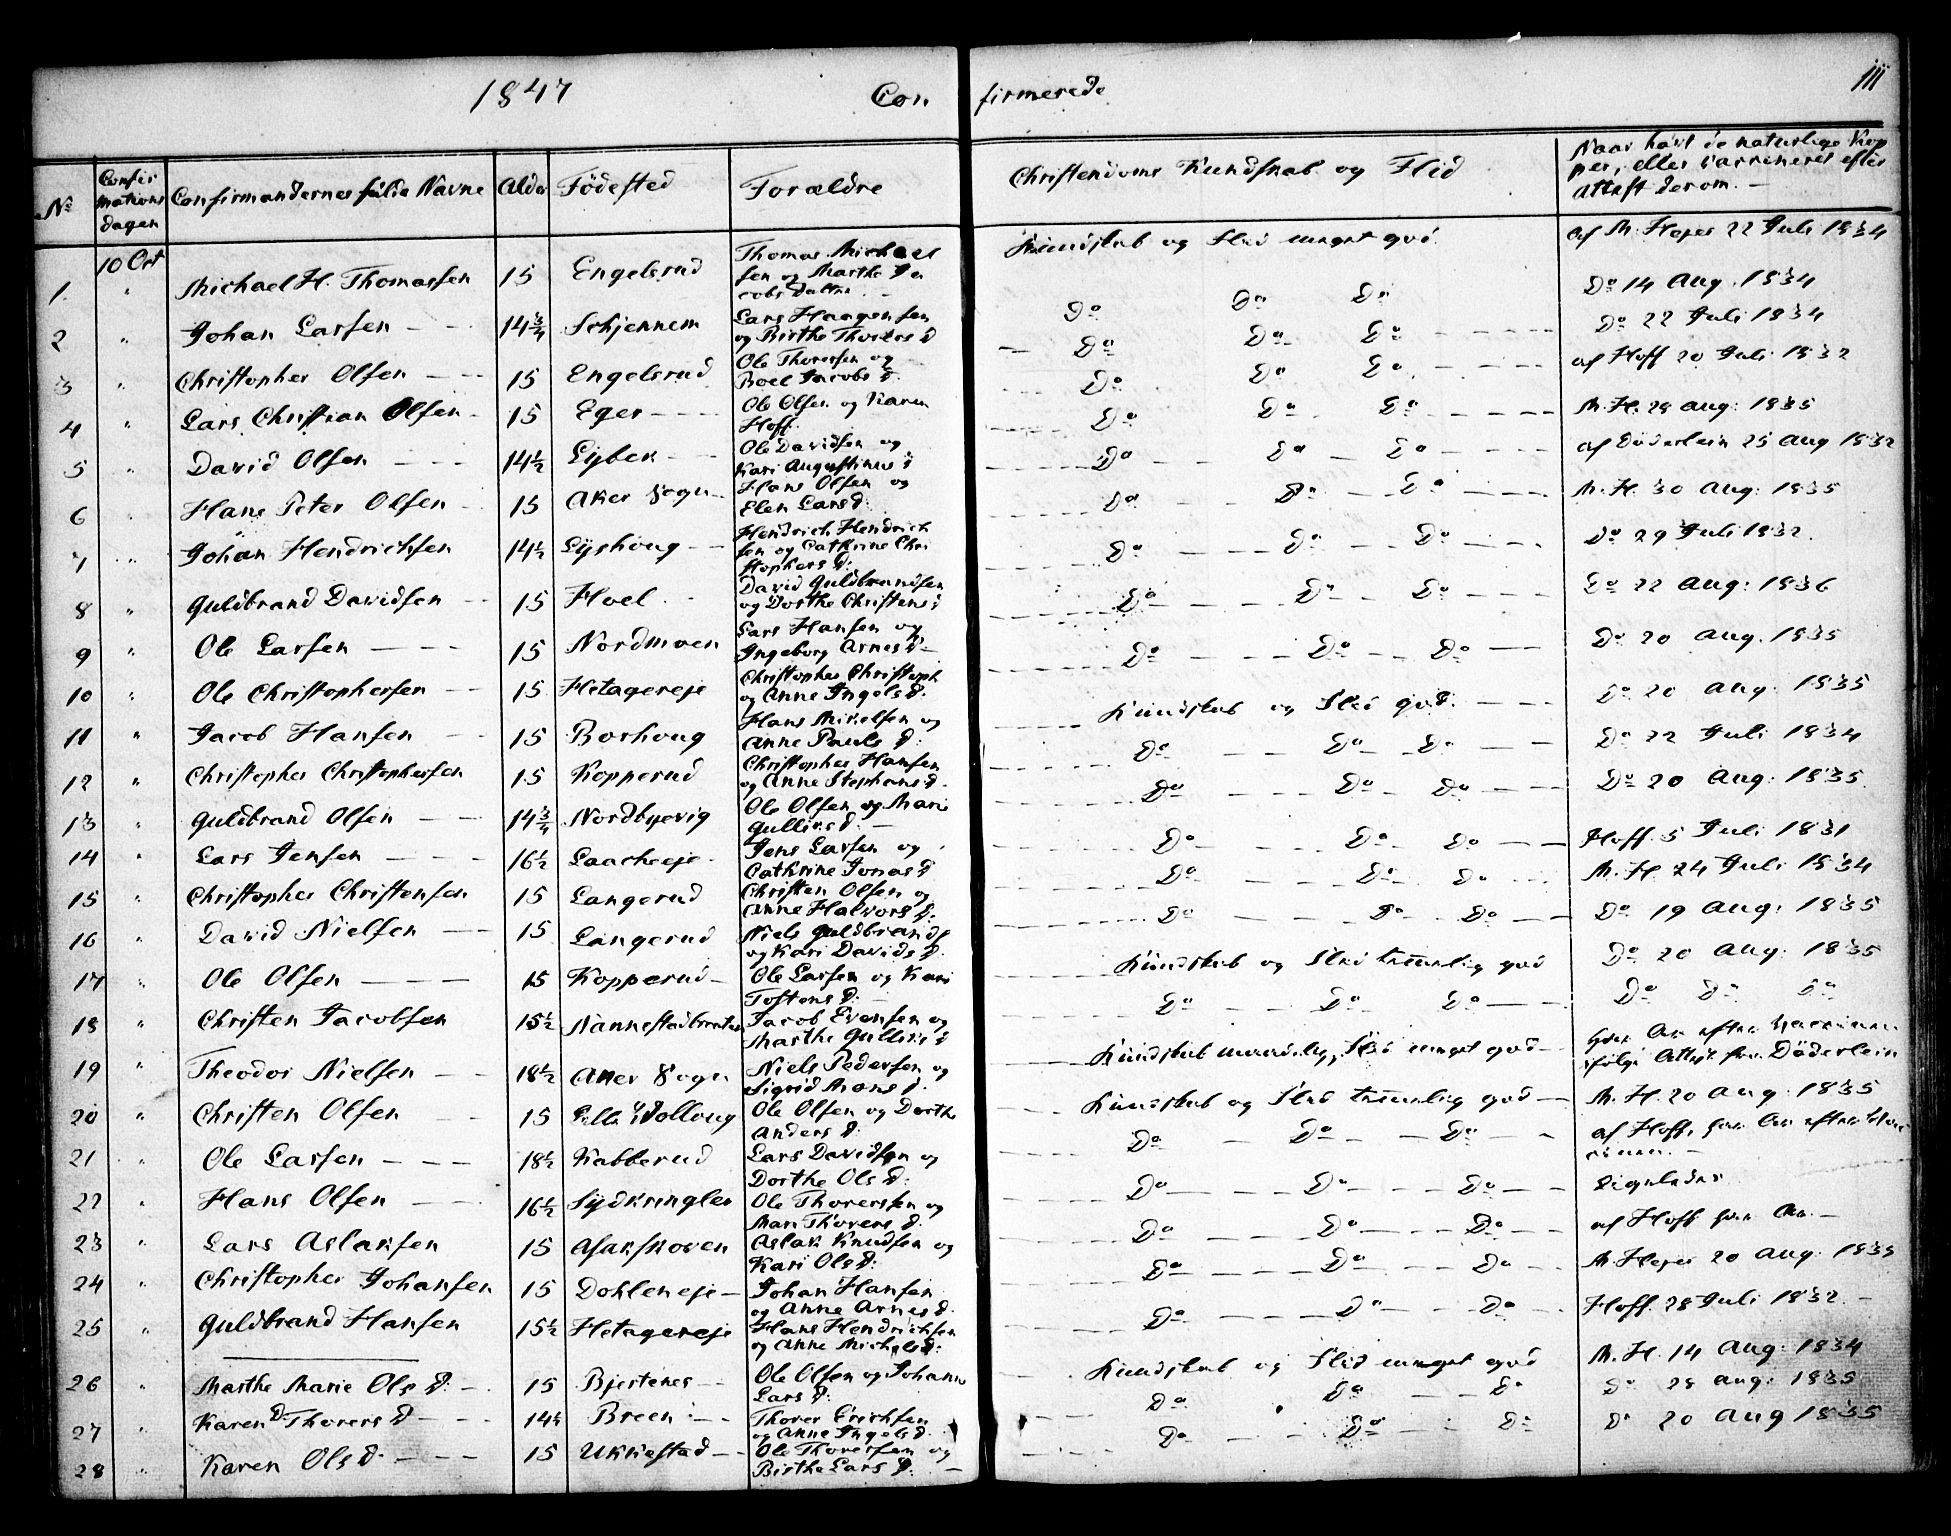 1847 Confirmerede 111
No Confirmationsdagen Confirmandernes fulde Navne Alder Fødested Forældre Christendoms Kundskab og Flid Naar havt de naturlige Kopper, eller vaccineret efter Attest derom.
10 Oct
1. " Michael H. Thomassen 15 Engelsrud Thomas Michaelsen og Marthe Jacobs Datter Kundskab og Flid meget god af M. Hejer 22 Juli 1834
2 " Johan Larsen 14¾ Schjennem Lars Haagensen og Birthe Thorers D Do Do Do Do 14 Aug. 1834
3 " Christopher Olsen 15 Engelsrud Ole Thorersen og Boel Jacobs D. Do Do Do Do 22 Juli 1834
4 " Lars Christian Olsen 15 Eger Ole Olsen og Karen Hoff Do Do Do af Hoff 20 Juli 1832
5 " David Olsen 14½ Lybek Ole Davidsen og Kari Augustinus D Do Do Do M. H. 28 Aug: 1835
6 " Hans Peter Olsen 15 Aker Sogn Hans Olsen og Elen Lars D: Do Do Do af Döderlein 25 Aug 1832
7 " Johan Hendrichsen 14½ Lyshoug Hendrich Hendrichsen og Cathrine Christophers D: Do Do Do M. H. 30 Aug: 1835
8 " Guldbrand Davidsen 15 Hoel David Guldbrandsen og Dorthe Christens D Do Do Do Do 29 Juli 1832.
9 " Ole Larsen 15 Nordmoen Lars Hansen og Ingeborg Arnes D Do Do Do Do 22 Aug: 1836
10 " Ole Christophersen 15 Hetagereje Christopher Christoph og Anne Ingels D. Do Do Do Do 20 Aug. 1835
11 " Jacob Hansen 15 Borhoug Hans Mikelsen og Anne Pauls D: Kundskab og Flid god. Do 20 Aug: 1835
12 " Christopher Christophersen 15 Kopperud Christopher Hansen og Anne Stephans D. Do Do Do Do 22 Juli 1834
13 " Guldbrand Olsen 14¾ Nordbyevig Ole Olsen og Marie Gullivs D: Do Do Do Do 20 Aug: 1835
14 " Lars Jensen 16½ Laacheeje Jens Larsen og Cathrine Jonas D Do Do Do Hoff. 5 Juli 1831
15 " Christopher Christensen 15 Langerud Christen Olsen og Anne Halvors D: Do Do Do M. H. 24 Juli 1834
16 " David Nielsen 15 Langerud Niels Guldbrands og Kari Davids D. Do Do Do Do 19 Aug: 1835
17 " Ole Olsen 15 Kopperud Ole Larsen og Kari Tostens D: Kundskab og Flid temmelig god Do 20 Aug: 1835
18 " Christen Jacobsen 15½ Jacob Evensen og Marthe Gullivs D Do Do Do Do Do Do
19 " Theodor Nielsen 18½ Aker Sogn Niels Pedersen og Sigrid Mons D. Kundskab maadelig, Flid meget god har Ar efter Vaccinen ifølge Attest fra Döderlein
20 " Christen Olsen 15 Ole Olsen og Dorthe Anders D: Kundskab og Flid temmelig god M. H. 20 Aug: 1835
21 " Ole Larsen 18½ Kabberud Lars Davidsen og Dorthe Ols D: Do Do Do af Hoff, har Ar efter
22 " Hans Olsen 16½ Sydkringler Ole Thorersen og Mari Thorers D. Do Do Do ligeledes
23 " Lars Aslaksen 15 Asakskoven Aslak Knudsen og Kari Ols D: Do Do Do af Hoff har Ar.
24 " Christopher Johansen 15 Dohleneje Johan Hansen og Anne Arnes D. Do Do Do M. Hejer 20 Aug: 1835
25 " Guldbrand Hansen 15½ Hetagereje Hans Hendrichsen og Anne Michels D: Do Do Do Hoff. 28 Juli 1832.
26 " Marthe Marie Ols D: 15 Bjertenes Ole Olsen og Johanne Lars D: Kundskab og Flid meget god M. H. 14 Aug: 1834
27 " Karen D. Thorers D 14½ Breen Thorer Erichsen og Anne Ingels D. Do Do Do Do 28 Aug: 1835
28 " Karen Ols D. 15 Ukkestad Ole Thorersen og Birthe Lars D: Do Do Do Do 20 Aug 1835